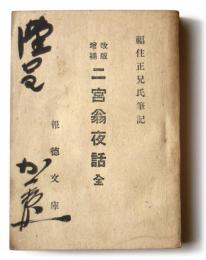 福住正兄氏筆記
改版
增補
二宮翁夜話 全
報德文庫